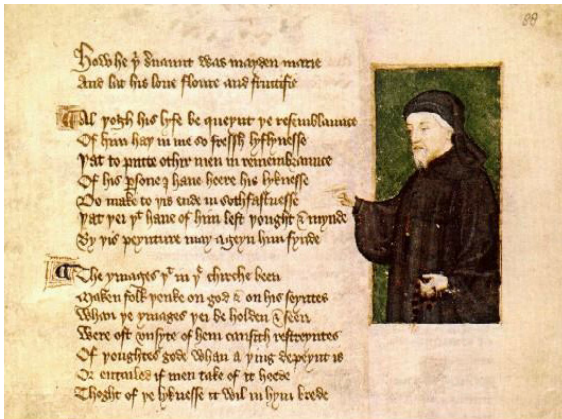 88
How he þi seruaunt was mayden marie
And lat his loue floure and fructifie
Al þogh his lyfe be queynt þe resemblaunce
Of him haþ in me so fressh lyflynesse
Þat to putte othir men in remembraunce
Of his persone I haue heere his lyknesse
Do make to þis ende in sothfastnesse
Þat þei þt haue of him left þought & mynde
By þis peynture may ageyn him fynde
The ymages þt in þe chirche been
Maken folk þenke on god & on his seyntes
Whan þe ymages þei be holden & seen
Were oft vnsyte of hem causith restreyntes
Of þoughtes gode whan a þing depeynt is
Or entailed if men take of it heede
Thoght of þe lyknesse it wil in hym brede